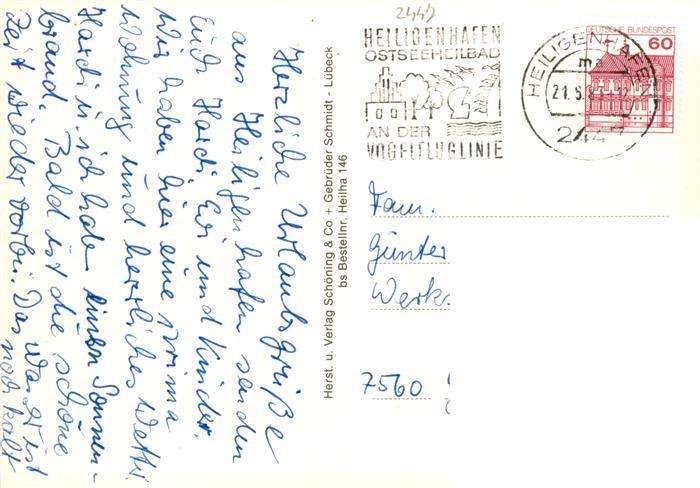 Herzliche Urlaubsgrüße
aus Heiligenhafen senden
Euch Hardi, Evi und Kinder.
Wir haben hier eine prima
Wohnung und herrliches Wetter
Hardi u. ich haben einen Sonnen-
brand. Bald ist die schöne
Zeit wieder vorbei. Das Wasser ist
noch kalt
Herst. u. Verlag Schöning & Co + Gebrüder Schmidt - Lübeck
bs Bestellnr. Heilha 146
2447
HEILIGENHAFEN
OSTSEEHEILBAD
AN DER
VOGELFLUGLINIE
HEILIGENHAFEN
ma
21.5.
244
DEUTSCHE BUNDESPOST
60
Fam.
Günter
Werk.
7560